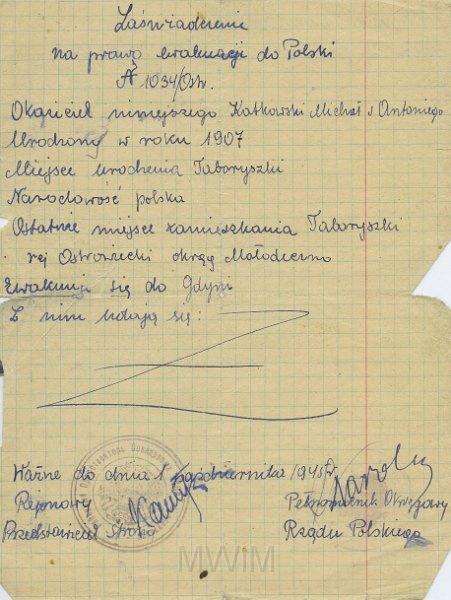 Zaświadczenie
na prawo ewakuacji do Polski
№ 1034/Ostr.
Okaziciel niniejszego Katkowski Michał s Antoniego
Urodzony w roku 1907
Miejsce urodzenia Taboryszki
Narodowość polska
Ostatnie miejsce zamieszkania Taboryszki
rej Ostrowiecki okręg Mołodeczno
Ewakuuje się do Gdyni
Z nim udają się:
Ważne do dnia 1 października 1945 r.
Rejonowy Pełnomocnik Okręgowy
Przedstawiciel Rządu Polskiego
MWIM